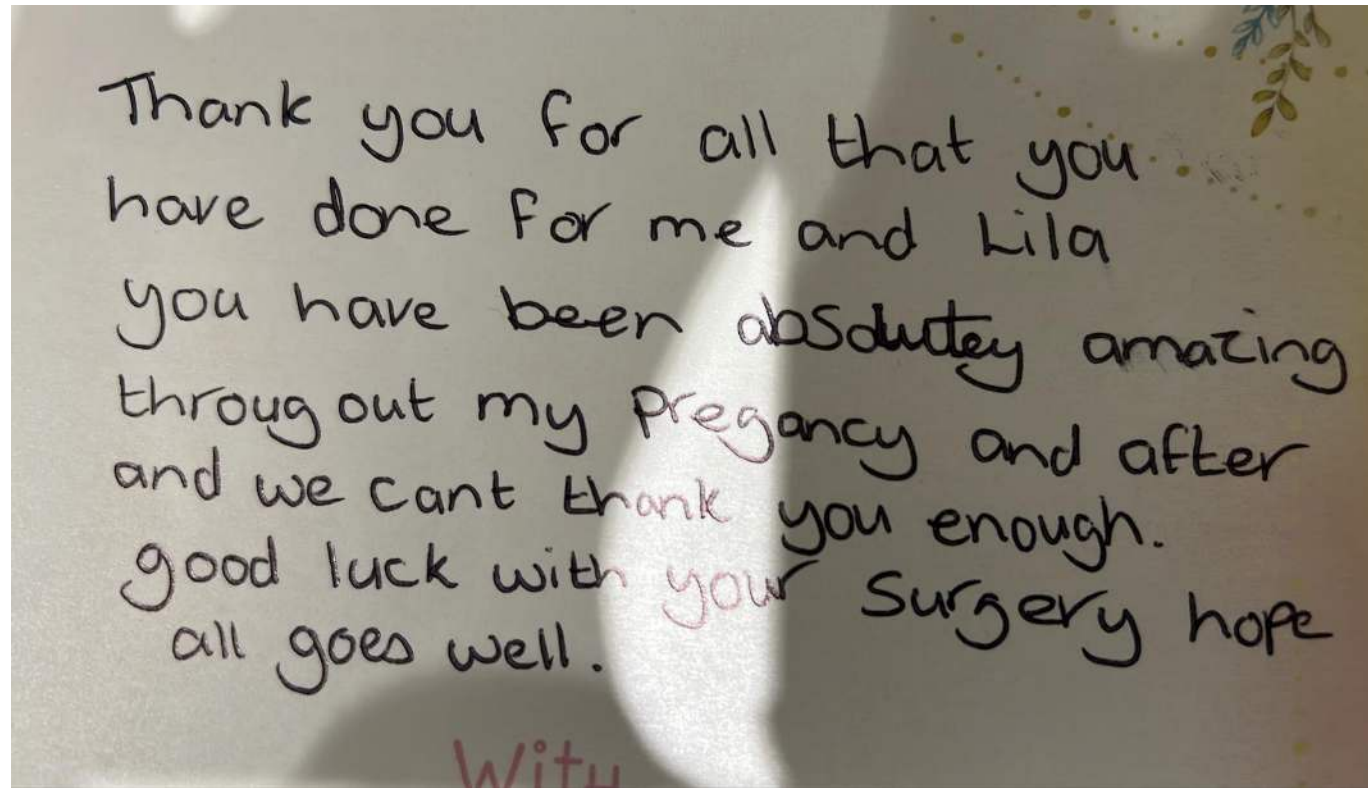 Thank you for all that you
have done for me and Lila
you have been absolutey amazing
throug out my pregancy and after
and we cant thank you enough.
good luck with your surgery hope
all goes well.
With